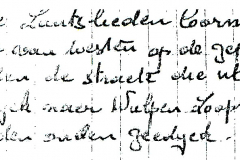 Lantslieden Corn
van westen op de ge
en de straete die u
naer Wulpen Loop
den ouden zeedyck.